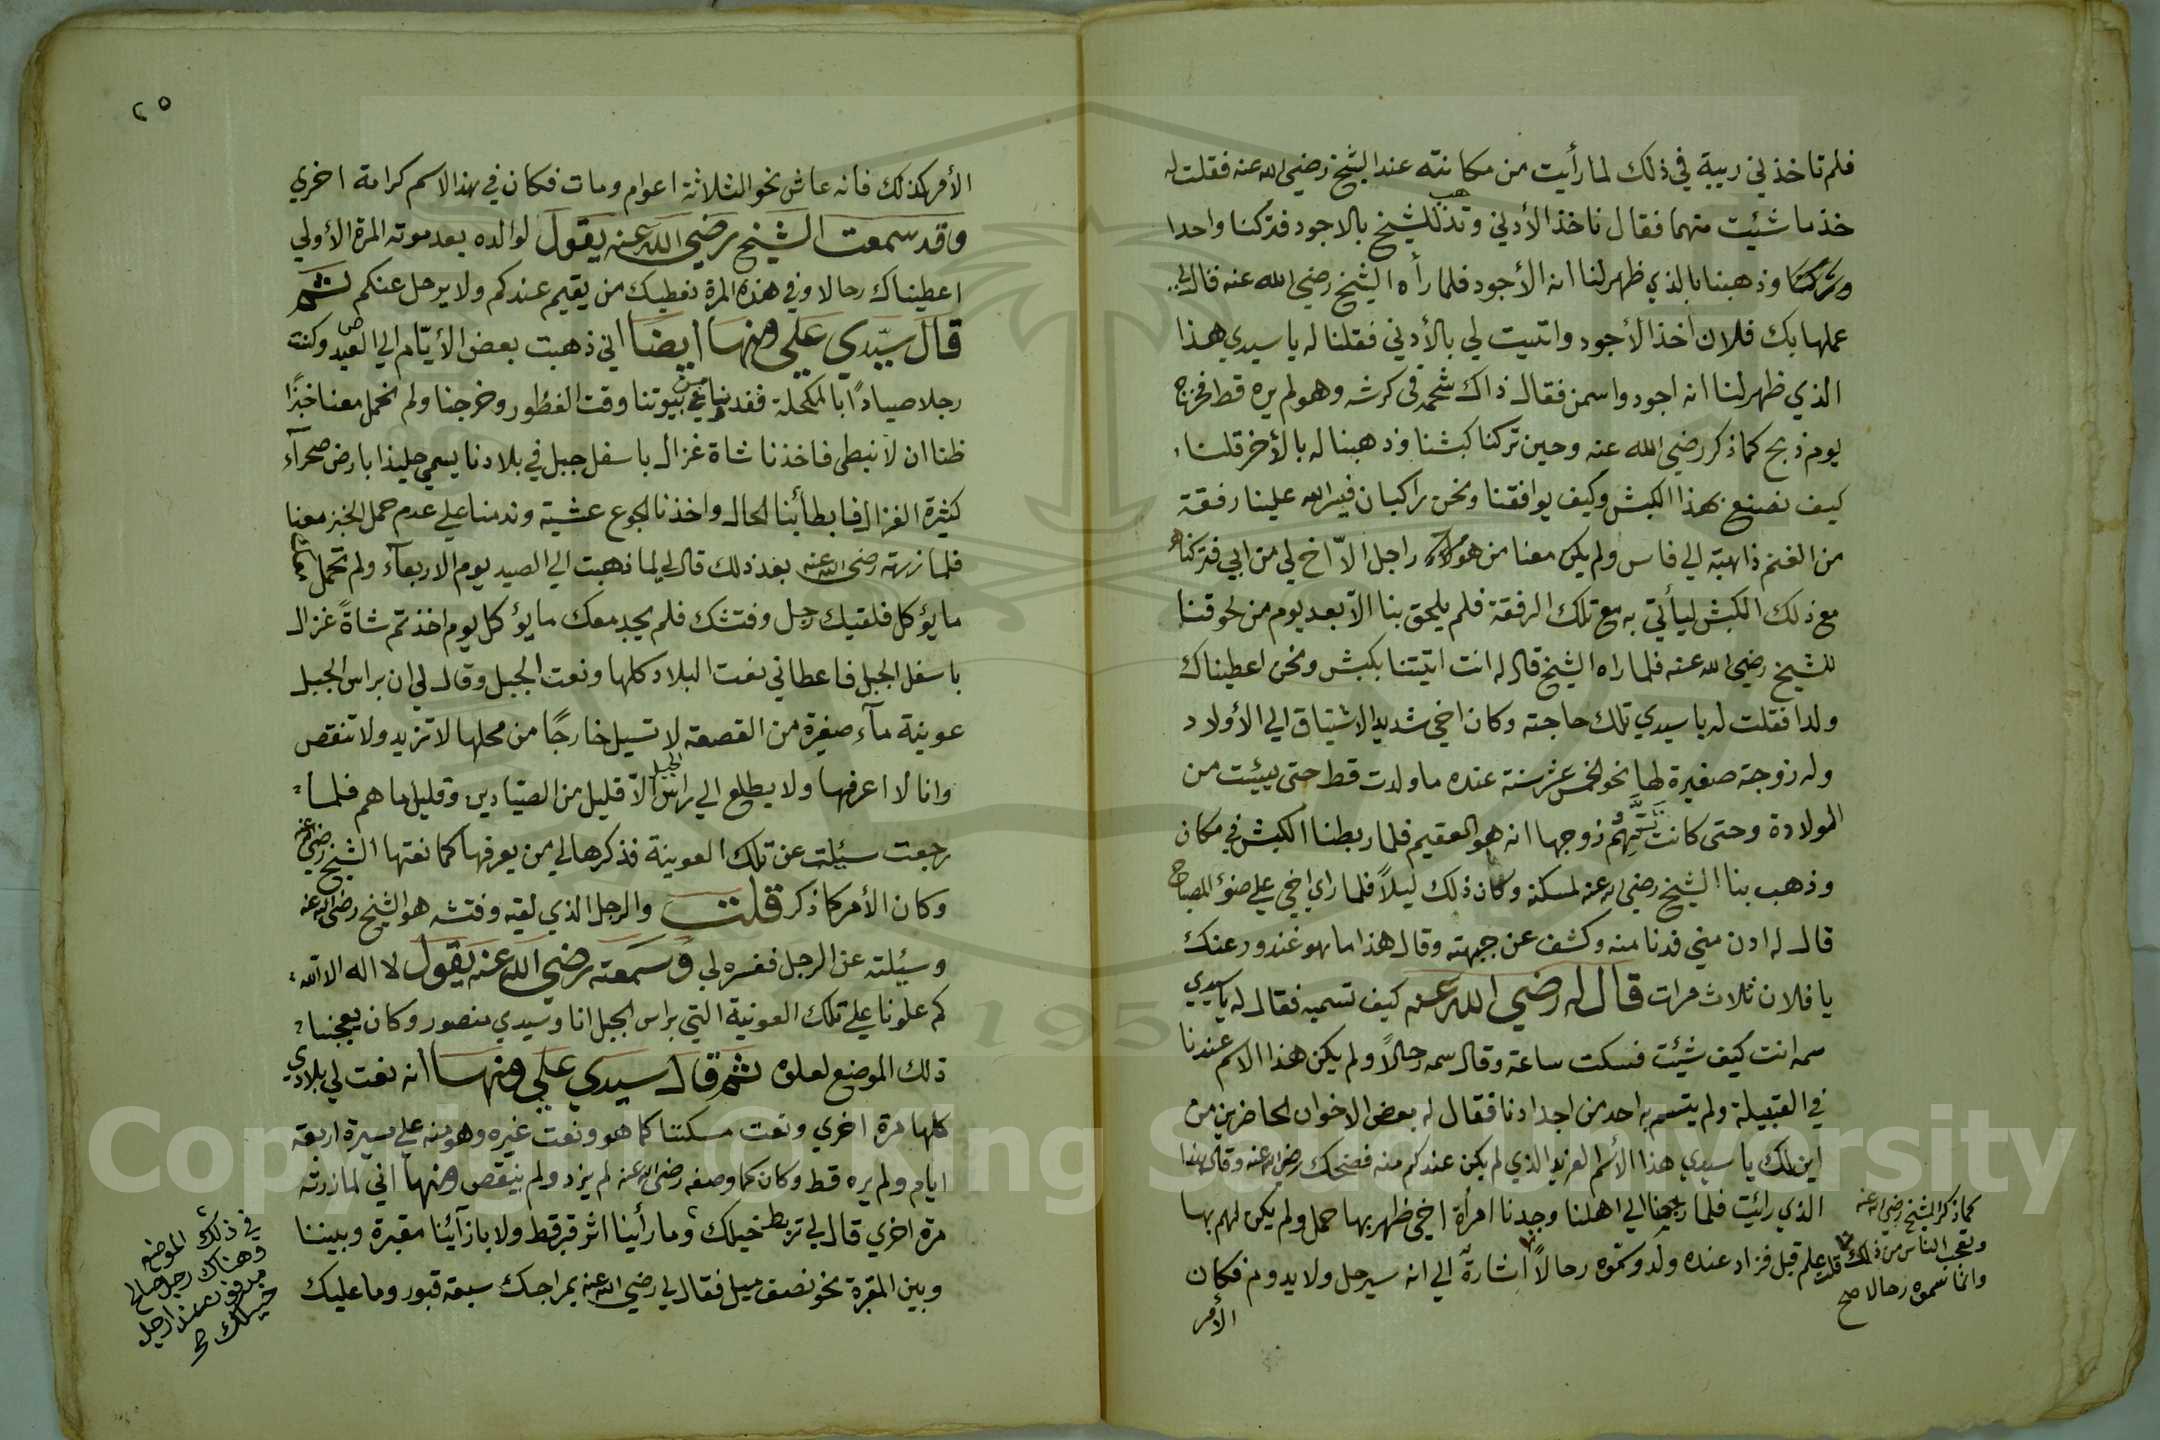 فلم تاخذني ريبة في ذلك لما رأيت من مكانته عند الشيخ رضي الله عنه فقلت له
خذ ما شئت منهما فقال ناخذ الأدني ونذهب للشيخ بالاجود فتركنا واحدا
وتركنا وذهبنا بالذي ظهر لنا انه الأجود فلما رأه الشيخ رضي الله عنه قال لي
عملها بك فلان اخذ الأجود واتيت لي بالأدني فقلنا له يا سيدي هذا
الذي ظهر لنا انه اجود واسمن فقال ذاك شحمه في كرشه وهو لم يره قط فخرج
يوم ذبح كما ذكر رضي الله عنه وحين تركنا كبشنا وذهبنا له بالأخر قلنا
كيف نصنع بهذا الكبش وكيف يوافقنا ونحن راكبان فيسر الله علينا رفقة
من الغنم ذاهبة الي فاس ولم يكن معنا من هو راجل الاّ اخ لي من ابي فتركناه
مع ذلك الكبش ليأتي به مع تلك الرفقة فلم يلحق بنا الاّ بعد يوم من لحوقنا
للشيخ رضي الله عنه فلما راه الشيخ قال له انت اتيتنا بكبش ونحن اعطيناك
ولدا فقلت له يا سيدي تلك حاجته وكان اخي شديد الاشتياق الي الأولاد
وله زوجة صغيرة لها نحو الخمس عشر سنة عنده ما ولدت قط حتى يئيت من
الولادة وحتى كانت تتَّهِمُ زوجها انه هو العقيم فلما ربطنا الكبش في مكان
وذهب بنا الشيخ رضي الله عنه لمسكنه وكان ذلك ليلاً فلما راي اخي علي ضوء المصباح
قال له ادن مني فدنا منه وكشف عن جبهته وقال هذا ما هو غندور عنك
يا فلان ثلاث مرات قال له رضي الله عنه كيف تسميه فقال له يا سيدي
سمه انت كيف شئت فسكت ساعة وقال سمه رحالاً ولم يكن هذا الاسم عندنا
في القبيلة ولم يتسم به احد من اجدادنا فقال له بعض الاخوان الحاضرين من
اين لك يا سيدي هذا الأسم الغريب الذي لم يكن عندكم منه فضحك رضي الله عنه وقال هذا
الذي رائيت فلما رجعنا الي اهلنا وجدنا امرأة اخي ظهر بها حمل ولم يكن لهم بها
علم قبل فزاد عنده ولد وسموه رحالاً اشارة الي انه سيرحل ولا يدوم فكان
الأمر
كما ذكر الشيخ رضي الله عنه
وتعجب الناس من ذلك قلت
وانما سموه رحالا صح
٢٥
الأمر كذلك فأنه عاش نحو الثلاثة اعوام ومات فكان في هذا الاسم كرامة اخري
وقد سمعت الشيخ رضي الله عنه يقول لوالده بعد موته المرة الأولي
اعطيناك رحالا وفي هذه المرة نعطيك من يقيم عندكم ولا يرحل عنكم ثم
قال سيّدي علي ومنها ايضا اني ذهبت بعض الأيّام الي الصيد وكنت
رجلا صيادًا بالمكحلة فغدينا من بيوتنا وقت الفطور وخرجنا ولم نحمل معنا خبزًا
ظنا ان لا نبطي فاخذنا شاة غزال باسفل جبل في بلادنا يسمي حليذا بارض صحرآء
كثيرة الغزال فابطأ بنا الحال واخذنا الجوع عشية وندمنا علي عدم حمل الخبز معنا
فلما زرته رضي الله عنه بعد ذلك قال لي لما ذهبت الي الصيد يوم الاربعآء ولم تحمل معك
ما يؤكل فلقيك رجل وفتشك فلم يجد معك ما يؤكل يوم اخذتم شاةً غزال
باسفل الجبل فاعطاني نعت البلاد كلها ونعت الجبل وقال لي ان براس الجبل
عوينة مآء صغيرة من القصعة لا تسيل خارجًا من محلها لا تزيد ولا تنقص
وانا لا اعرفها ولا يطلع الي راس الجبل الاّ قليل من الصيّادين وقليل ما هم فلما
رجعت سئلت عن تلك العوينة فذكرها لي من يعرفها كما نعتها الشيخ رضي الله عنه
وكان الأمر كما ذكر قلت والرجل الذي لقيه وفتشه هو الشيخ رضي الله عنه
وسئلته عن الرجل ففسره لي وسمعته رضي الله عنه يقول لا اله الا الله
كم علونا علي تلك العوينة التي براس الجبل انا وسيدي منصور وكان يعجبنا
ذلك الموضع لعلوه ثم قال سيدي علي ومنها انه نعت لي بلادي
كلها مرة اخري ونعت مسكننا كما هو ونعت غيره وهو منه علي مسيرة اربعة
ايام ولم يره قط وكان كما وصفه رضي الله عنه لم يزد ولم ينقص ومنها اني لما زرته
مرة اخري قال لي تربط خيلك وما رأينا اثر قبر قط ولا بازآئنا مقبرة وبيننا
وبين المقبرة نحو نصف ميل فقال لي رضي الله عنه يمراجك سبعة قبور وما عليك
في ذلك الموضع
وهناك رجل صالح
مدفون عند ارجل
خيلك صح